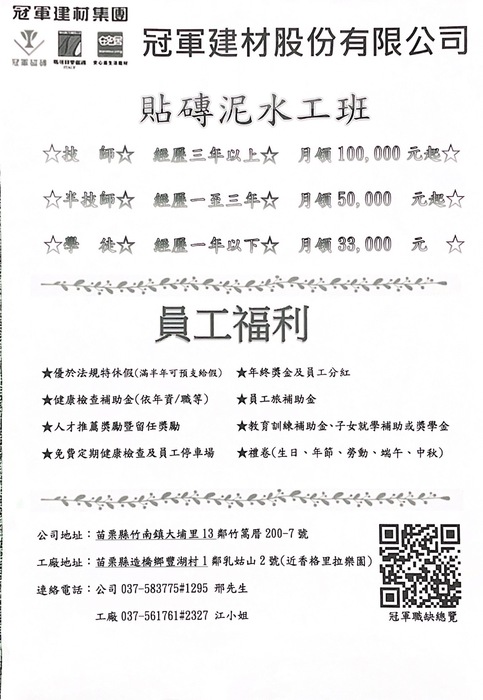 冠軍建材集團
冠軍建材股份有限公司
安心居
貼磚泥水工班
☆技 師☆ 經歷三年以上☆ 月領100,000 元起☆
☆半技師☆ 經歷一至三年☆ 月領50,000 元起☆
☆學 徒☆ 經歷一年以下☆ 月領33,000 元 ☆
員工福利
★優於法規特休假(滿半年可預支給假) ★年終獎金及員工分紅
★健康檢查補助金(依年資/職等) ★員工旅補助金
★人才推薦獎勵暨留任獎勵 ★教育訓練補助金、子女就學補助或獎學金
★免費定期健康檢查及員工停車場 ★禮卷(生日、年節、勞動、端午、中秋)
公司地址：苗栗縣竹南鎮大埔里13鄰竹篙厝200-7號
工廠地址：苗栗縣造橋鄉豐湖村1鄰乳姑山2號(近香格里拉樂園)
連絡電話：公司 037-583775#1295 邢先生
工廠 037-561761#2327 江小姐
冠軍職缺總覽